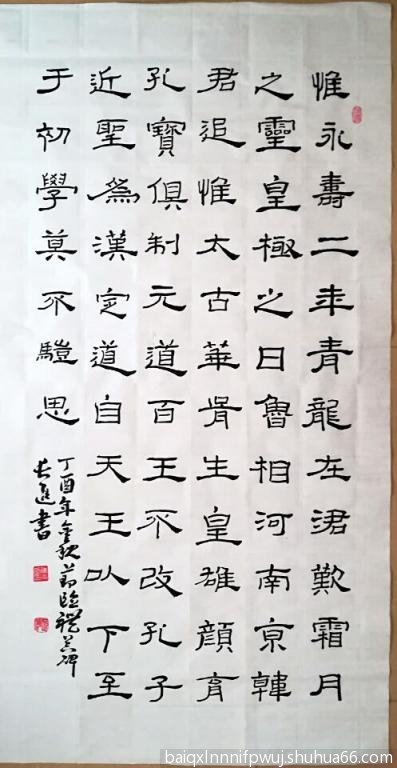 惟永壽二年青龍在涒歎霜月
之靈皇極之日魯相河南京韓
君追惟太古華胥生皇雄顏育
孔寶俱制元道百王不改孔子
近聖爲漢定道自天王以下至
于初學莫不思
丁酉年金秋節臨禮器碑
進書
baiqxlnnnifpwuj.shuhua66.com